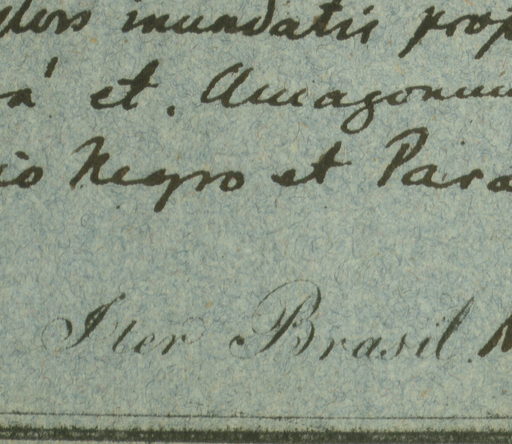 inundatis prop
et. Amazonum
Negro et Para
Iter Brasil.